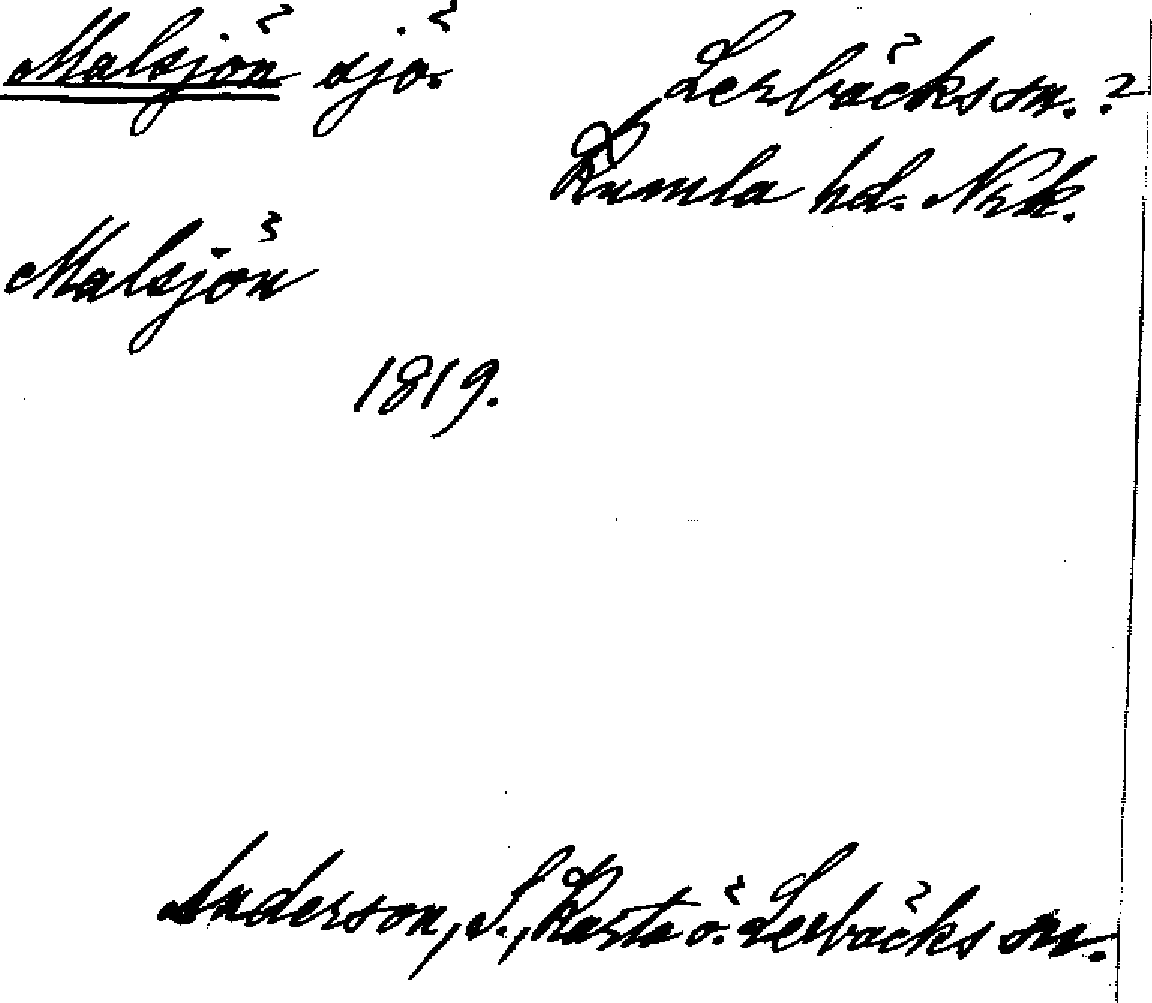 Malsjön sjö. Lerbäcks sn.?
Kumla hd. Nrk.
Malsjön
1819.
Anderson, S., Karta ö. Lerbäcks sn.